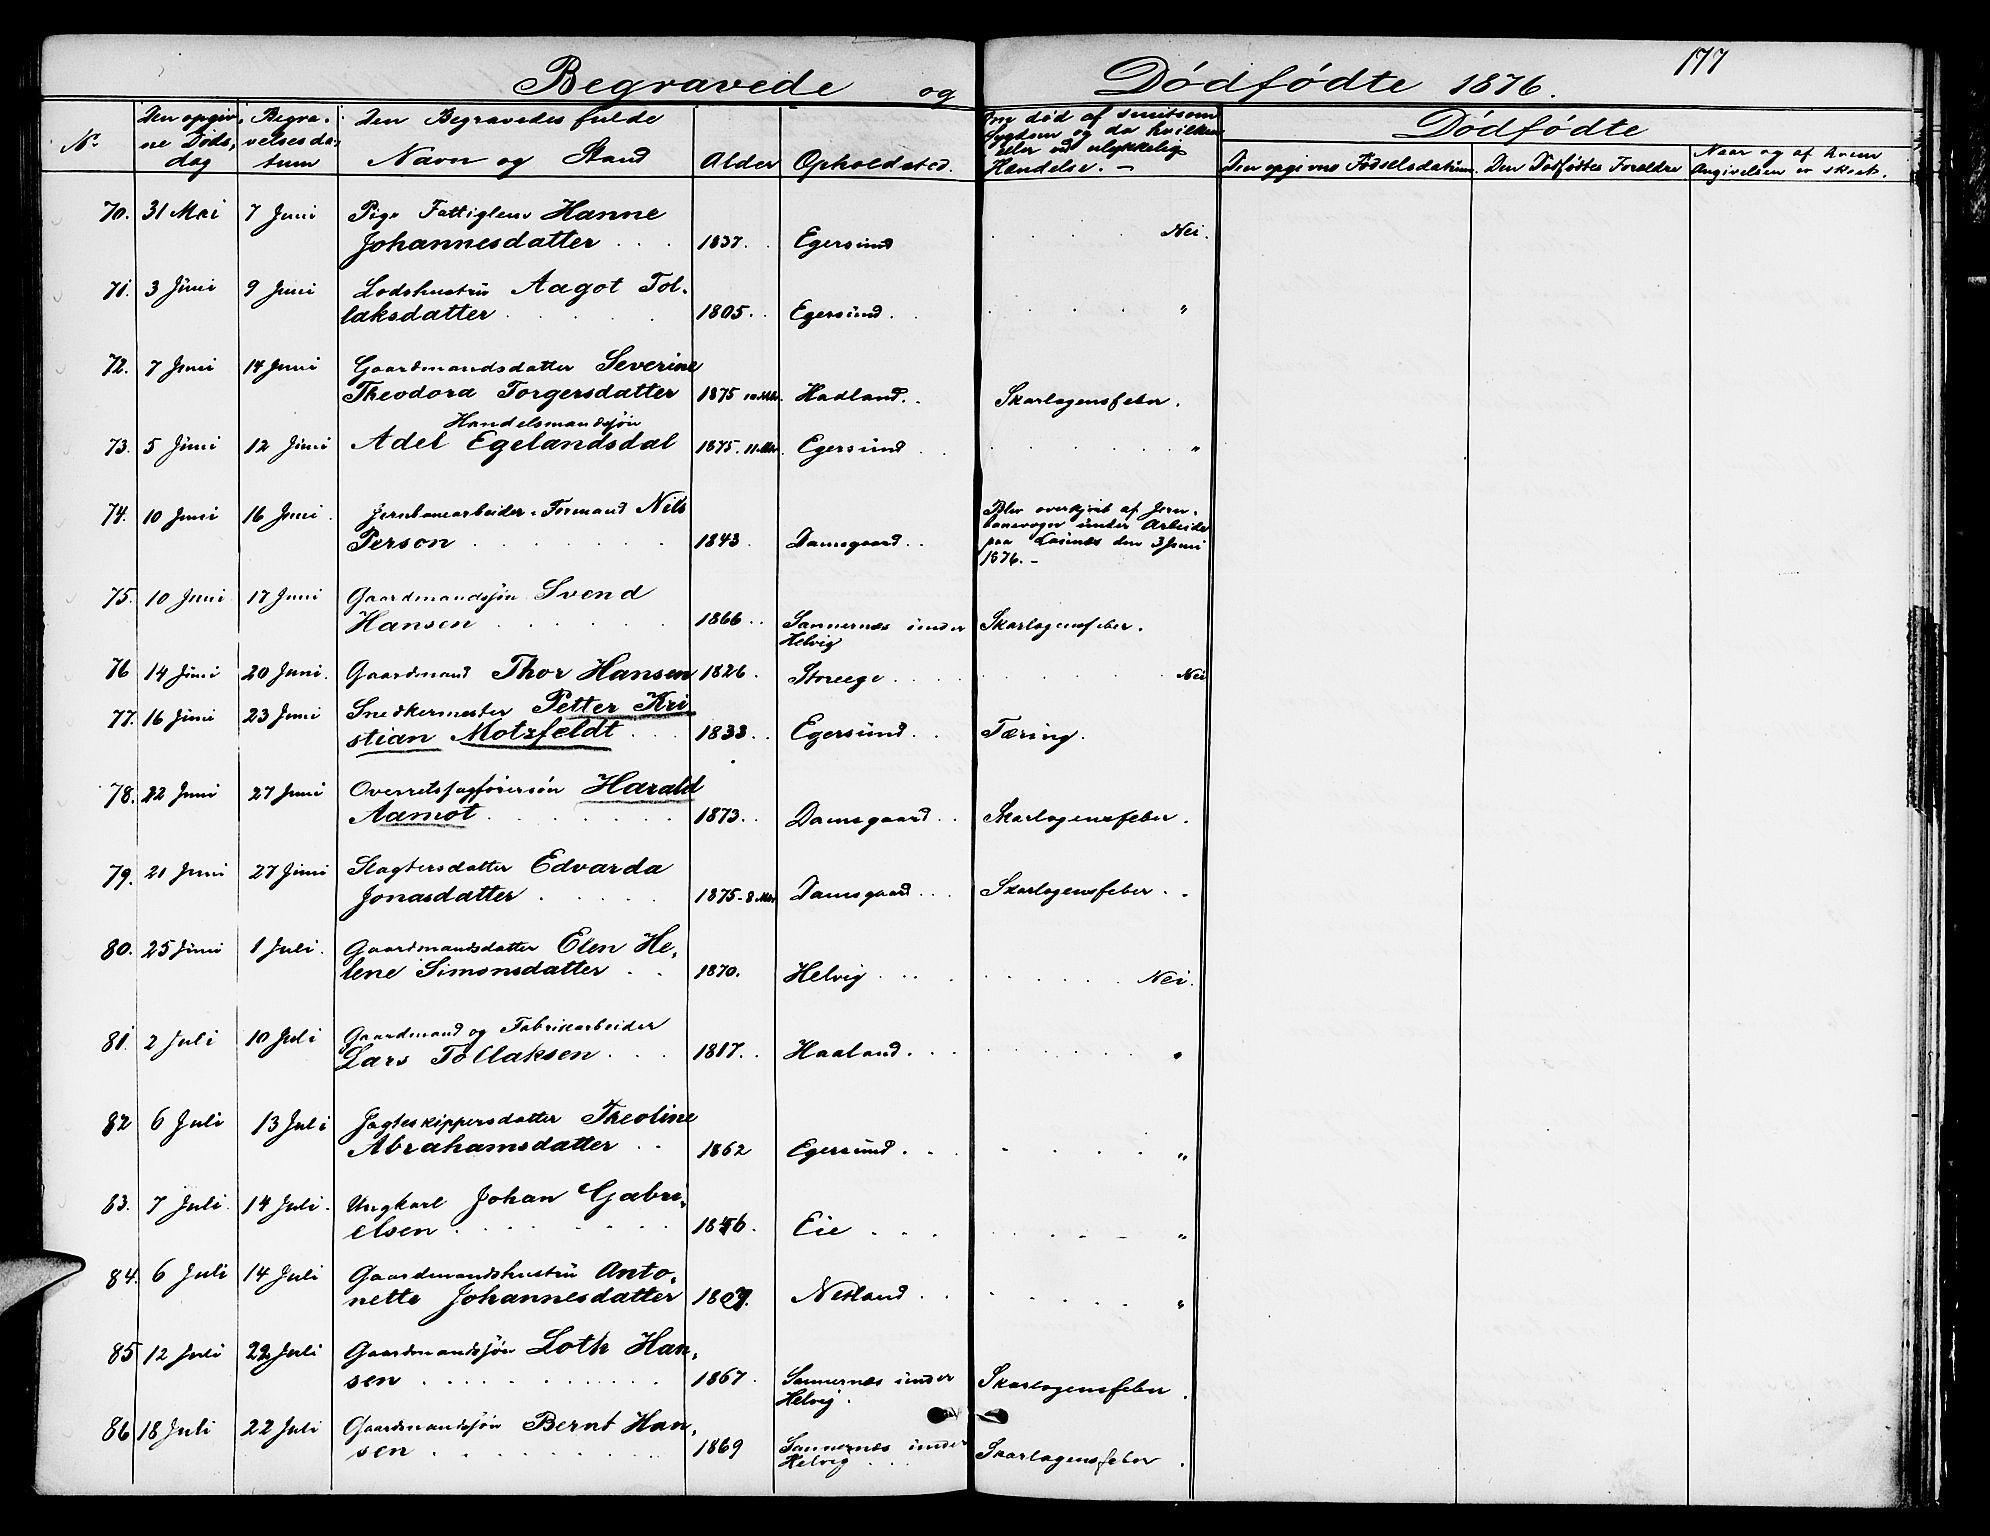 177
Begravede og Dødfødte 1876.
No Den opgivne Dødsdag Begravelsesdatum Den Begravedes fulde Navn og Stand Alder Opholdssted. Om død af smitsom Sygdom og da hvilken eller ved ulykkelig Hændelse. - Dødfødte
Den opgivne Fødselsdatum. Den Dødfødtes Forældre Naar og af hvem Angivelsen er skeet.
70. 31 Mai 7 Juni Pige Fattiglem Hanne
Johannesdatter . . . 1837. . Egersund . . . . Nei.
71. 3 Juni 9 Juni Lodshustru Aagot Tol-
laksdatter . . . . 1805. . Egersund . . . . . . "
72. 7 Juni 14 Juni Gaardmandsdatter Severine
Theodora Torgersdatter 1875 10 Mdr. Hadland. . Skarlagensfeber.
Handelsmandssøn
73. 5 Juni 12 Juni Adel Egelandsdal 1875. 11 Mdr. Egersund . . . . . . "
74. 10 Juni 16 Juni. Jernbanearbeider-Formand Nils
Person . . . . . . 1843. Damsgaard . .
Blev overkjørt af Jern-
banevogn under Arbeide
paa Launes den 3 Juni
1876. -
75. 10 Juni 17 Juni Gaardmandssøn Svend
Hansen . . . . . 1866 . . Sannernæs under Skarlagensfeber.
Helvig
76 14 Juni 20 Juni. Gaardmand Thor Hansen 1826. Storeege . . . . . . . Nei
77. 16 Juni 23 Juni Snedkermester Petter Kri
stian Motzfeldt . . . 1833. . Egersund . . Tæring.
78. 22 Juni 27 Juni Overretssagførersøn Harald
Aamot . . . . . . 1873. . Damsgaard . . Skarlagensfeber.
79. 21 Juni 27 Juni Slagtersdatter Edvarda
Jonasdatter . . . . 1875 - 8 Mdr Damsgaard . . . Skarlagensfeber. .
80. 25 Juni 1 Juli. Gaardmandsdatter Elen He-
lene Simonsdatter . . 1870. Helvig . . . . . . . Nei.
81. 2 Juli 10 Juli Gaardmand og Fabrikarbeider
Lars Tollaksen . . . 1817. . Haaland. . . . . . . "
82 6 Juli 13 Juli Jagteskippersdatter Theoline
Abrahamsdatter . . 1862 Egersund. . . . . . . "
83. 7 Juli. 14 Juli. Ungkarl Johan Gabri-
elsen . . . . . . 1846. Eie . . . . . . . "
84. 6 Juli 14 Juli Gaardmandshustru Anto-
nette Johannesdatter 1807. Nesland . . . . . . "
85 12 Juli 22 Juli Gaardmandssøn Loth Han-
sen . . . . . . . 1867. Sannernæs under Skarlagensfeber.
Helvig.
86 18 Juli 22 Juli Gaardmandssøn Bernt Han-
sen . . . . . . . 1869 Sannernæs under Skarlagensfeber.
Helvig . . .